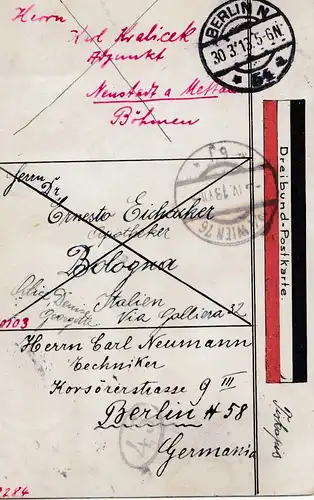 Herrn
Karl Kralicek
Adjunkt
Neustadt a Mettau
Böhmen
BERLIN N
30.3.13.5-6N.
* 54 a
Herrn
Dr
Ernesto Eichacker
Apotheker
Bologna
Italien
Via Galliera 32
WIEN 76
Dreibund-Postkarte.
0103
Herrn Carl Neumann
Techniker
Korsörerstrasse 9 III
Berlin N 58
Germania
284